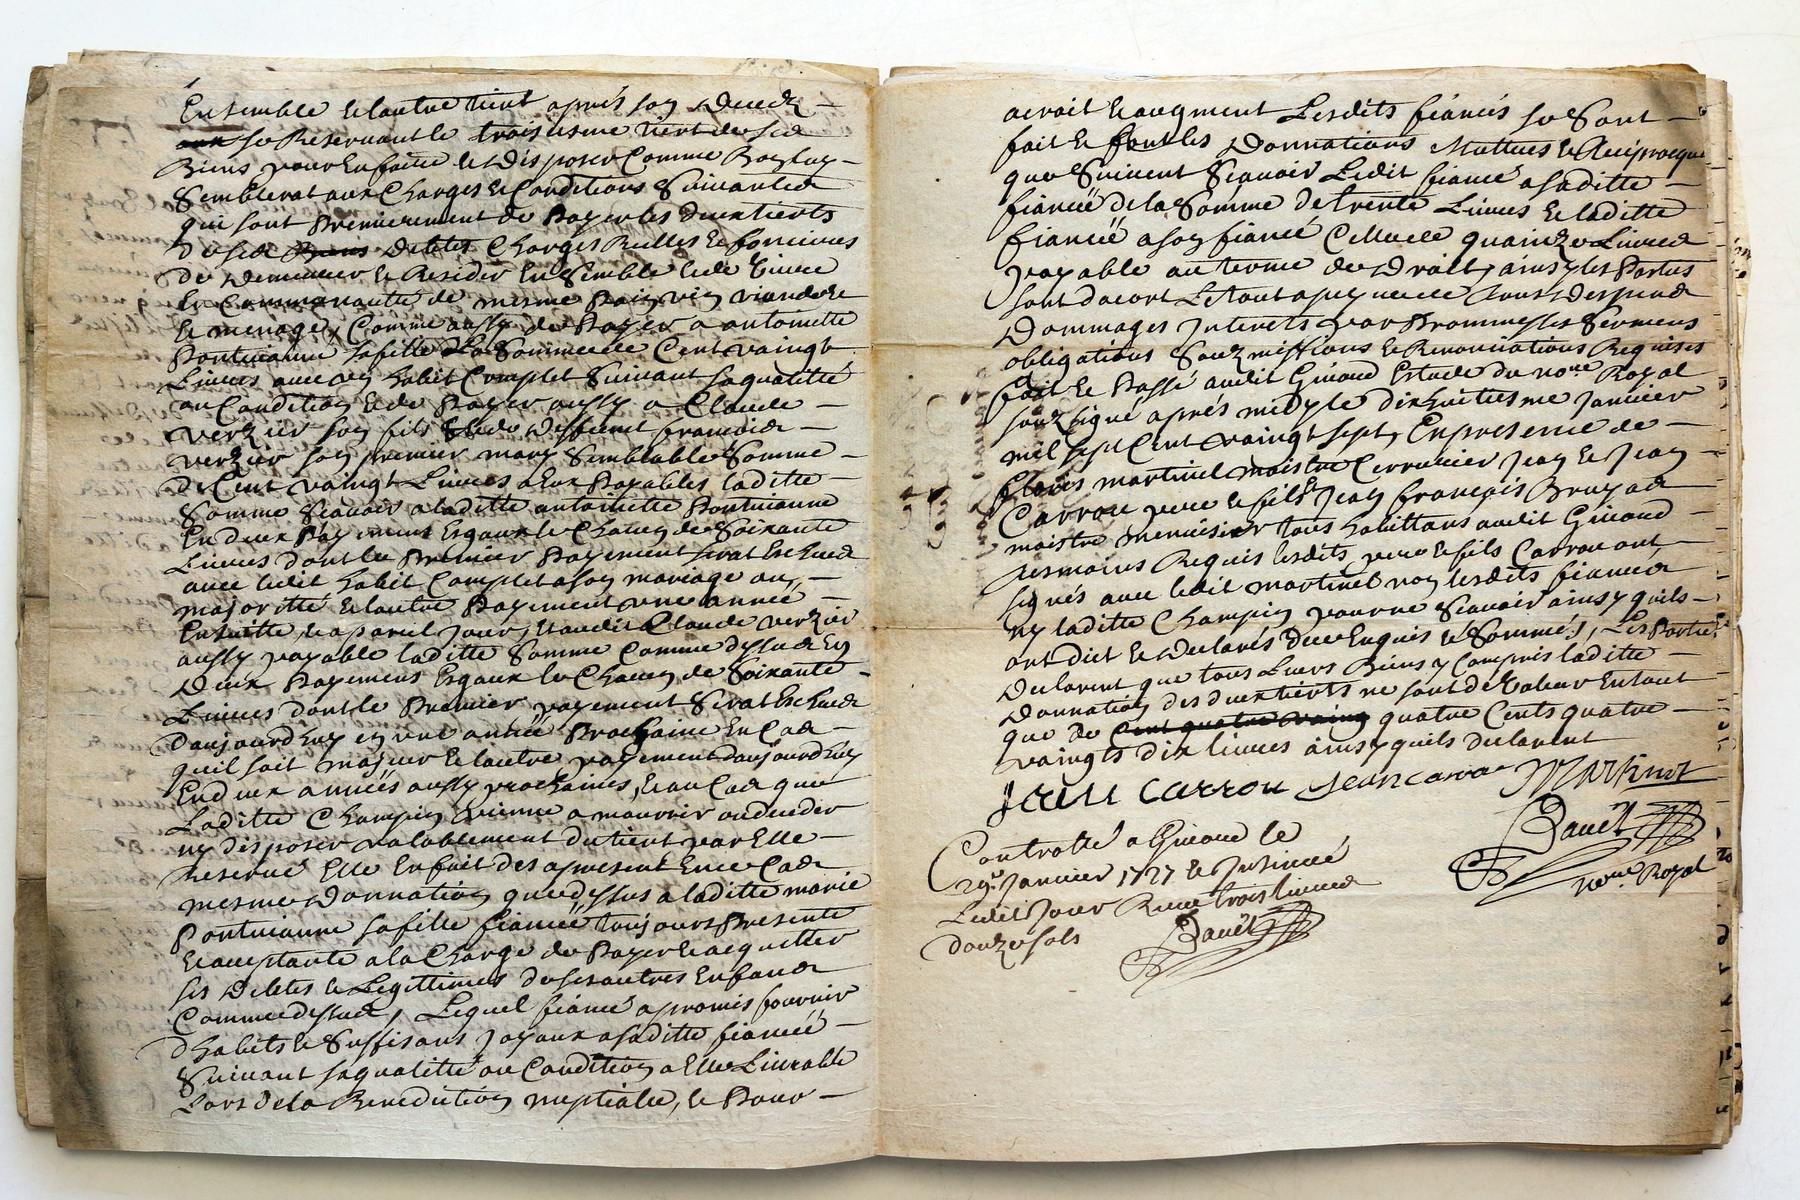 Ensemble et lautre tiert aprés son deceds
aux se Reservant le troisiesme tiert de ses
Biens pour En faire et disposer Comme Bon luy
Semblerat aux Charges et Conditions Suivantes
qui sont Premierement de Payer les deux tierts
de ses Biens debtes Charges Reelles et foncieres
de demeurer et Resider Ensemble et de vivre
En Communauté de mesme Pain vin viande et
et menage, Comme aussy de Payer a antoinette
Pontvianne sa fille La Somme de Cent vaingt
Livres avec un habit Complet Suivant sa qualitté
ou Condition et de Payer aussy a Claude
verzier son fils et de deffunt francois
verzier son premier mary Semblable Somme
de Cent vaingt Livres a Eux Payables laditte
Somme Scavoir a laditte antoinette Pontvianne
En deux Payemens Esgaux de Chacun de Soixante
Livres dont le Premier Payement serat Escheu
avec ledit habit Complet a son mariage ou
majoritté et lautre Payement une année
Ensuitte et a pareil jour, et audit Claude verzier
aussy payable laditte Somme Comme dessus En
Deux Payemens Esgaux de Chacun de Soixante
Livres dont le Premier payement Serat Escheu
daujourdhuy en une année Prochaine En Cas
quil soit majeur et lautre payement daujourdhuy
En deux années aussy prochaines, et au Cas que
Laditte Champin vienne a mourrir ou deceder
ny disposer valablement du tiert par Elle
Reservé Elle En fait des a present En ce Cas
mesme donnation que dessus a laditte marie
Pontvianne sa fille fiancée toujours Presente
et acceptante a la Charge de Payer et acquitter
ses debtes et Legittimes de ses autres Enfans
Comme dessus, Lequel fiancé a promis fournir
dhabits et Suffisans joyaux a saditte fiancée
Suivant sa qualitté ou Condition a Elle Livrable
Lors de la Benediction nuptialle, et Pour
acroit et augment Lesdits fiancés se Sont
fait et font les Donnations Mutues et Reciproques
que Suivent Scavoir Ledit fiancé a saditte
fiancée de la Somme de trente Livres et laditte
fiancée a son fiancé Celle de quainze Livres
payable au terme de Droit, ainsy les Parties
sont dacort Le tout a peyne de tous despens
Dommages Interets par Prommesses Sermens
obligations Soûzmissions et Renonciations Requises
fait et Passé audit Givord Estude du no.re Royal
souzsigné aprés midy le dixhuitiesme Janvier
mil sept Cent vaingt sept, En presence de
martinel maistre Cerrurier Jean et Jean
Carrou pere et fils et Jean francois Bruyas
maistre menuisier tous habittans audit Givord
tesmoins Requis lesdits pere et fils Carrou ont
signés avec ledit martinel non lesdits fiancés
ny laditte Champin pour ne Scavoir ainsy quils
ont dict et declarés de ce Enquis et Sommés, Les Parties
declarent que tous Leurs Biens y Compris laditte
Donnation des deux tierts ne sont de valeur En tout
que de Cent quatre vaing quatre Cents quatre
vaingts dix livres ainsy quils declarent
Jean Carrou Jean carrou Martinel
Dauet
no.re Royal
Controllé a Givord le
29.e Janvier 1727 et Insinué
Ledit Jour Receu trois livres
douze sols
Dauet